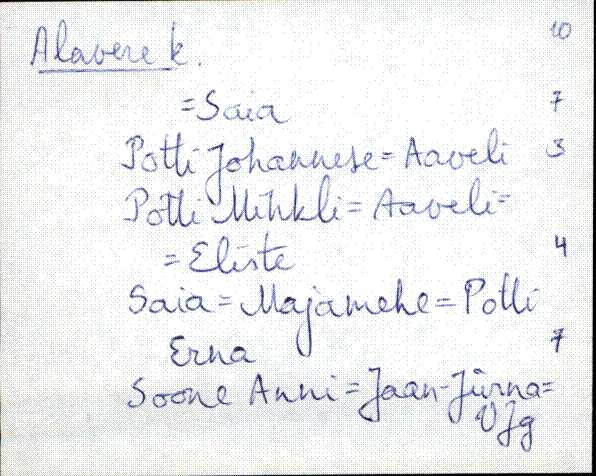 Alavere k. 10
=Saia 7
Potti Johannese=Aaveli 3
Potti Mihkli=Aaveli=
=Eliste 4
Saia=Majamehe=Potti
Erna 7
Soone Anni=Jaan-Jürna=
VJg